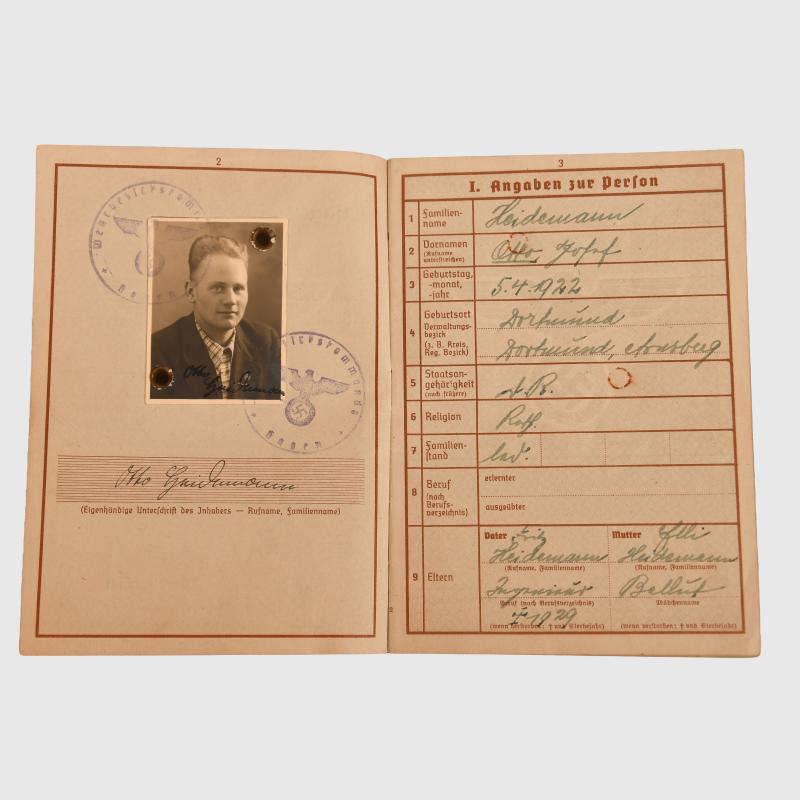 2
Wehrbezirkskommando
Hagen
Otto
Heidemann
Wehrbezirkskommando
Hagen
Otto Heidemann
(Eigenhändige Unterschrift des Inhabers — Rufname, Familienname)
3
I. Angaben zur Person
1 Familien-
name
Heidemann
2 Vornamen
(Rufname
unterstreichen)
Otto Josef
3 Geburtstag,
-monat,
-jahr
5.4.1922
4 Geburtsort
Verwaltungs-
bezirk
(z. B. Kreis,
Reg. Bezirk)
Dortmund
Dortmund, Arnsberg
5 Staatsan-
gehörigkeit
(auch frühere)
d.R.
6 Religion
Kath.
7 Familien-
stand
led.
8 Beruf
(nach
Berufs-
verzeichnis)
erlernter
ausgeübter
9 Eltern
Vater Fritz
Heidemann
(Rufname, Familienname)
Ingenieur
Beruf (nach Berufsverzeichnis)
† 1929
(wenn verstorben: † und Sterbejahr)
Mutter Elli
Heidemann
(Rufname, Familienname)
Bellut
Mädchenname
(wenn verstorben: † und Sterbejahr)